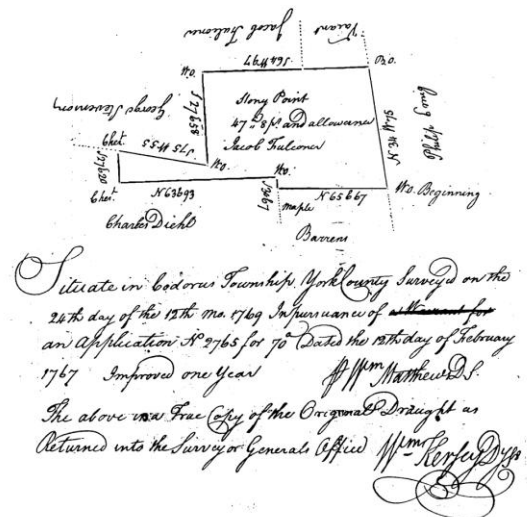 Jacob Fulioner
Vacant
S64W97
W.O.
B.O.
George Stevenson
S27E58
Stony Point
47a 8p. and allowance
Jacob Fulconer
Chest.
S75W55
W.O.
W.O.
S27E20
Chest.
N63E93
S9E67
Maple
N65E67
W.O. Beginning
Charles Diehl
Barrens
Situate in Codorus Township York County Surveyed on the
24th day of the 12th Mo. 1769 In pursuance of a Warrant for
an Application No 2765 for 70a Dated the 12th day of February
1767 Improved one Year
Wm Matthews D.S.
The above is a True Copy of the Original Draught as
Returned into the Surveyor Generals Office Wm Kersey